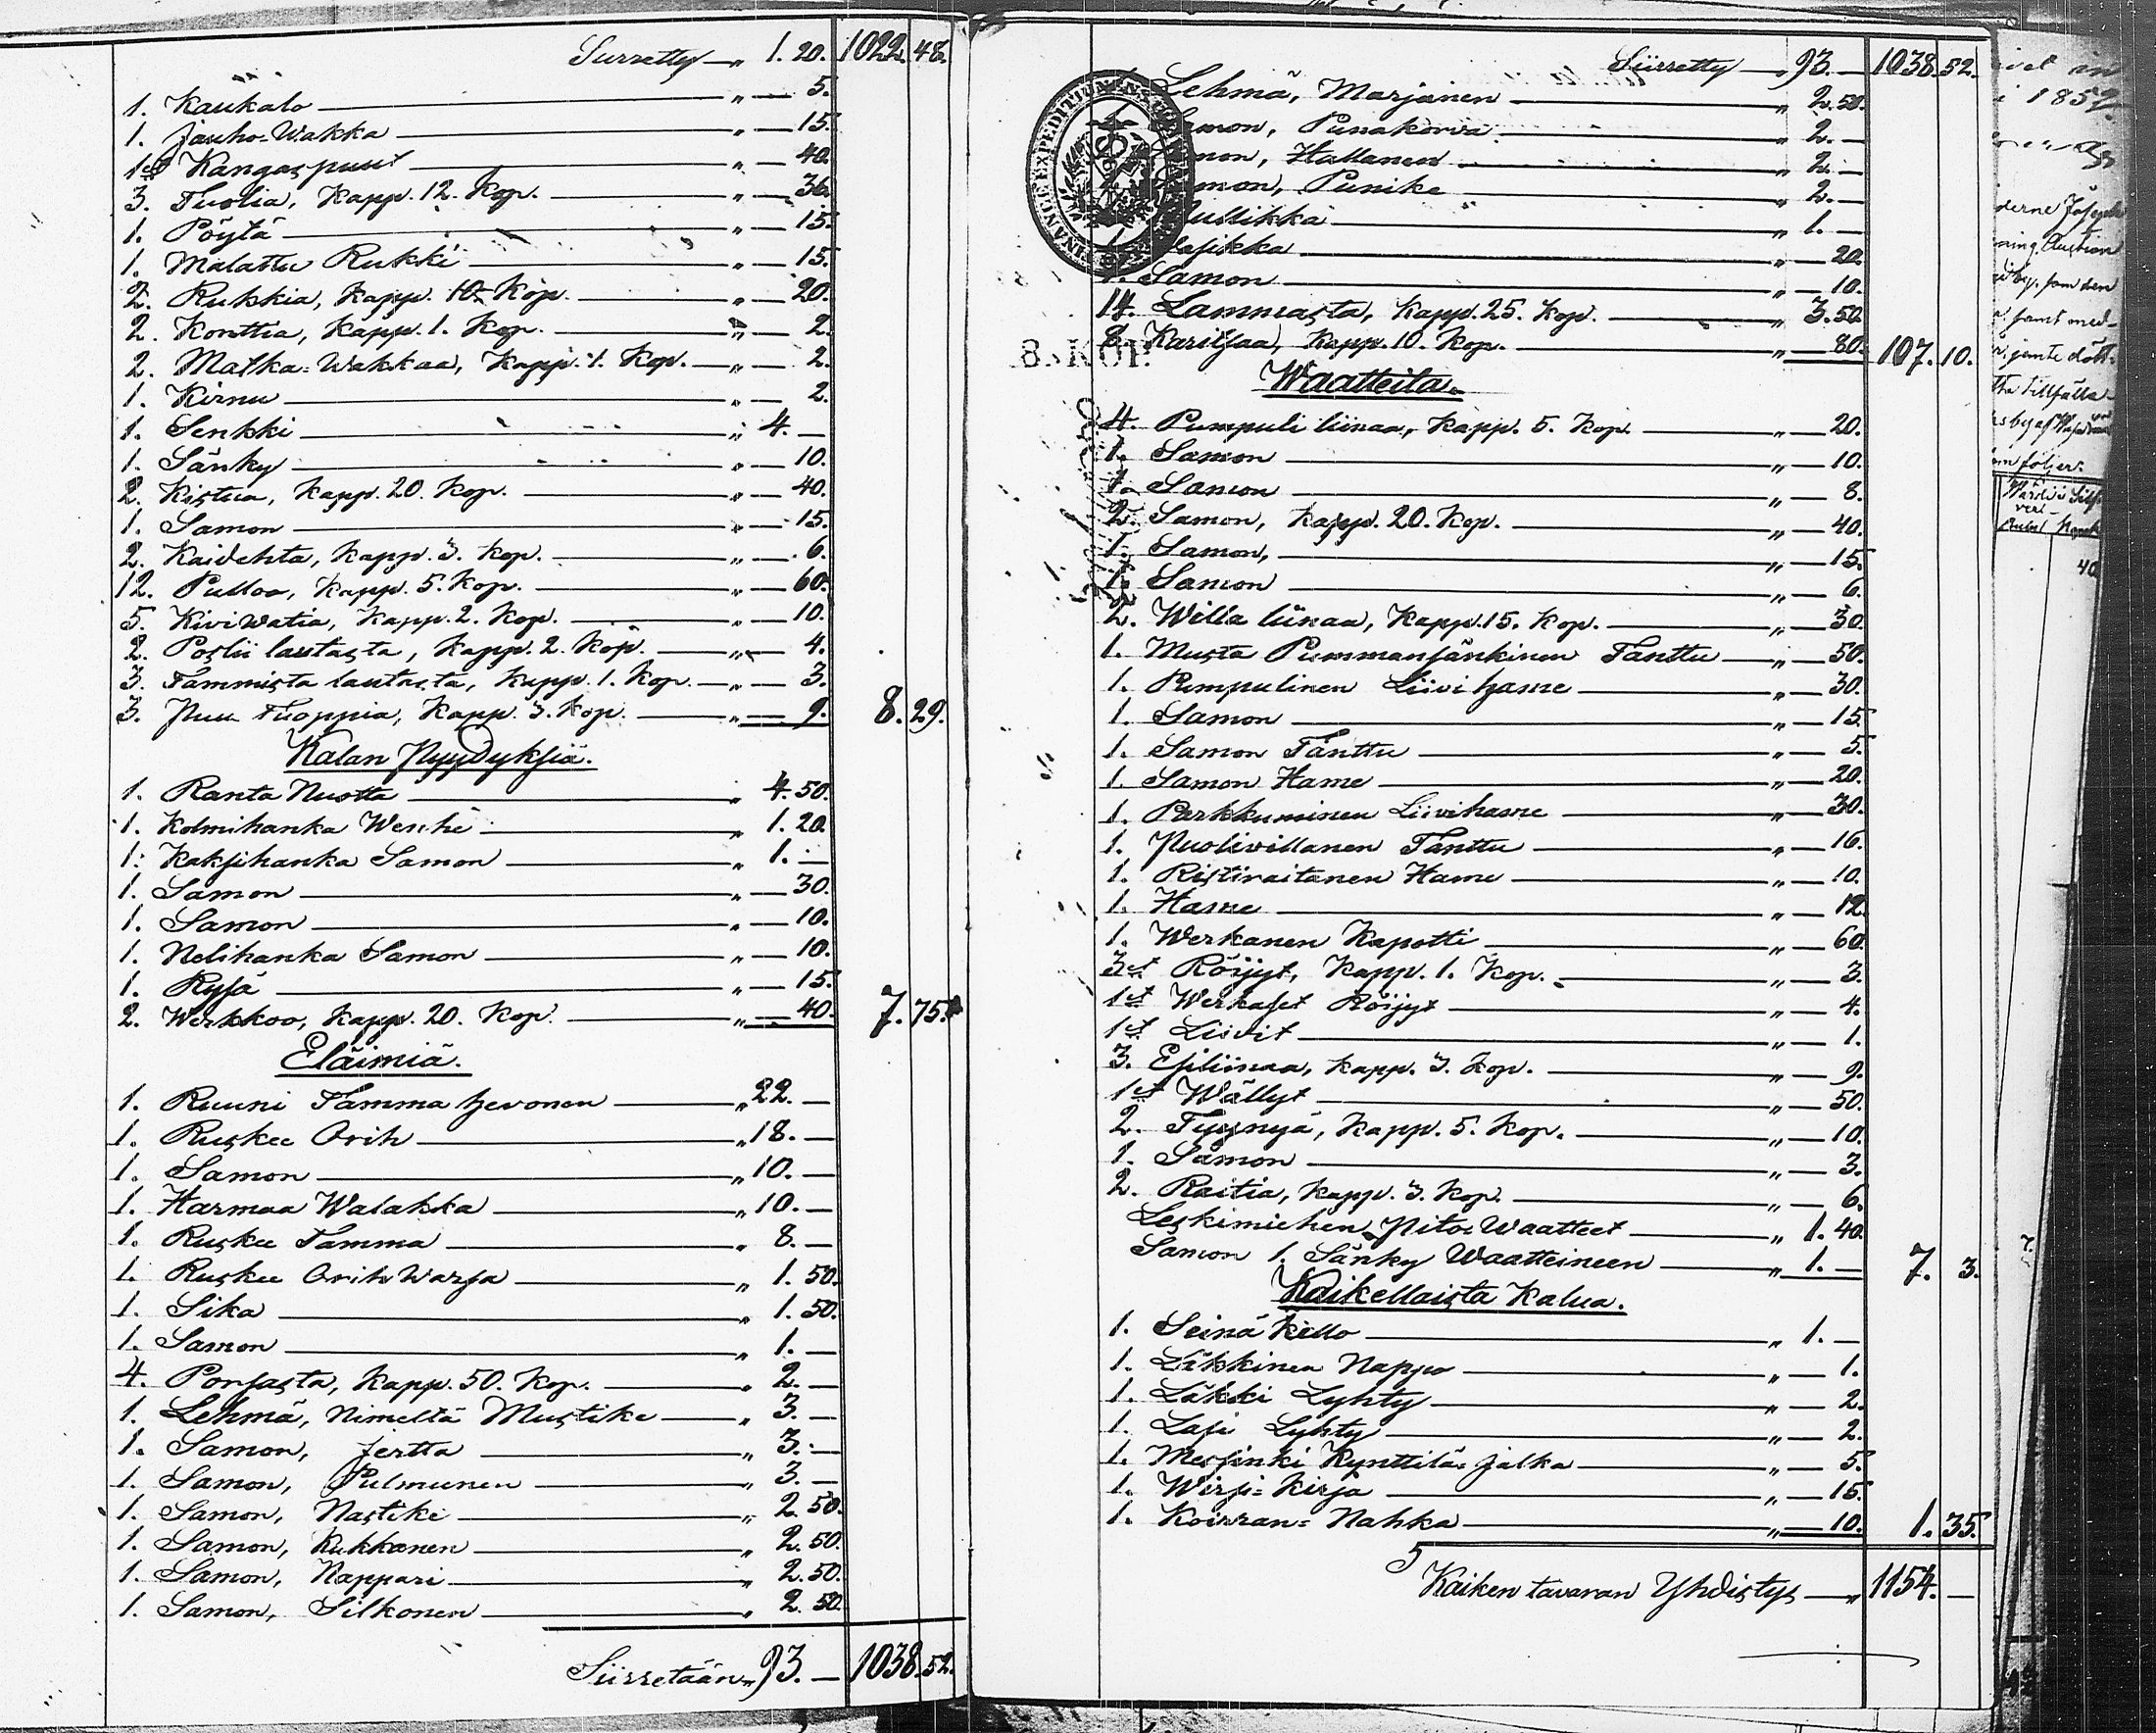 Siirretty — „ 1. 20. 1022. 48.
1. Kaukalo — „ — 5.
1. Jauho-Wakka — „ — 15.
1st Kangaspuut — „ — 40.
3. Tuolia, Kapp. 12. Kop. — „ — 36.
1. Pöytä — „ — 15.
1. Malattu Rukki — „ — 15.
2. Rukkia, Kapp. 10. Kop. — „ — 20.
2. Konttia, Kapp. 1. Kop. — „ — 2.
2. Matka-Wakkaa, Kapp. 1. Kop. — „ — 2.
1. Kirnu — „ — 2.
1. Senkki — „ 4. —
1. Sänky — „ — 10.
2. Kistua, Kapp. 20. Kop. — „ — 40.
1. Samon — „ — 15.
2. Kaidehta, Kapp. 3. Kop. — „ — 6.
12. Pulloa, Kapp. 5. Kop. — „ — 60.
5. Kiviwatia, Kapp. 2. Kop. — „ — 10.
2. Poslii lautasta, Kapp. 2. Kop. — „ — 4.
3. Tammista lautasta, Kapp. 1. Kop. — „ — 3.
3. Puu Tuoppia, Kapp. 3. Kop. — „ — 9. 8. 29.
Kalan Pyydyksiä.
1. Ranta Nuotta — „ 4. 50.
1. Kolmihanka Wenhe — „ 1. 20.
1. Kaksihanka Samon — „ 1. —
1. Samon — „ — 30.
1. Samon — „ — 10.
1. Nelihanka Samon — „ — 10.
1. Rysä — „ — 15.
2. Werkkoo, Kapp. 20. Kop. — „ — 40. 7. 75.
Eläimiä.
1. Ruuni Tamma hevonen — „ 22. —
1. Ruskee Orih — „ 18. —
1. Samon — „ 10. —
1. Harmaa Walakka — „ 10. —
1. Ruskee Tamma — „ 8. —
1. Ruskee Orih Warsa — „ 1. 50.
1. Sika — „ 1. 50.
1. Samon — „ 1. —
4. Porsasta, Kapp. 50. Kop. — „ 2. —
1. Lehmä, Nimeltä Mustike — „ 3. —
1. Samon, Jertta — „ 3. —
1. Samon, Pulmunen — „ 3. —
1. Samon, Nastike — „ 2. 50.
1. Samon, Kukkanen — „ 2. 50.
1. Samon, Nappari — „ 2. 50.
1. Samon, Silkonen — „ 2. 50.
Siirretään „ 93. — 1038. 52.
Siirretty — „ 93. — 1038. 52.
Lehmä, Marjanen — „ 2. 50.
Samon, Punakorva — „ 2. —
Samon, Hallanen — „ 2. —
Samon, Punike — „ 2. —
Mullikka — „ 1. —
Wasikka — „ — 20.
1. Samon — „ — 10.
14. Lammasta, Kapp. 25. Kop. — „ 3. 50.
8. Karitsaa, Kapp. 10. Kop. — „ — 80. 107. 10.
8. KOP.
Waatteita.
4. Pumpuli liinaa, Kapp. 5. Kop. — „ — 20.
1. Samon — „ — 10.
1. Samon — „ — 8.
2. Samon, Kapp. 20. Kop. — „ — 40.
1. Samon, — „ — 15.
1. Samon — „ — 6.
2. Willa liinaa, Kapp. 15. Kop. — „ — 30.
1. Musta Pummansänkinen Tanttu — „ — 50.
1. Pumpulinen Liivihame — „ — 30.
1. Samon — „ — 15.
1. Samon Tanttu — „ — 5.
1. Samon Hame — „ — 20.
1. Parkkuminen Liivihame — „ — 30.
1. Puolivillanen Tanttu — „ — 16.
1. Ristiraitanen Hame — „ — 10.
1. Hame — „ — 12.
1. Werkanen Kapotti — „ — 60.
3st Röijyt, Kapp. 1. Kop. — „ — 3.
1st Werkaset Röijyt — „ — 4.
1st Liivit — „ — 1.
3. Esiliinaa, Kapp. 3. Kop. — „ — 9.
1st Wällyt — „ — 50.
2. Tyynyä, Kapp. 5. Kop. — „ — 10.
1. Samon — „ — 3.
2. Raitia, Kapp. 3. Kop. — „ — 6.
Leskimiehen Pito-Waatteet — „ 1. 40.
Samon 1. Sänky Waatteineen — „ 1. — 7. 3.
Kaikellaista Kalua.
1. Seinä Kello — „ 1. —
1. Läkkinen Nappo — „ — 1.
1. Läkki Lyhty — „ — 2.
1. Lasi Lyhty — „ — 2.
1. Messinki Kynttilän jalka — „ — 5.
1. Wirsi-Kirja — „ — 15.
1. Koirran-Nahka — „ — 10. 1. 35.
Kaiken tavaran Yhdistys — „ 1154. —
i 1852
derne Joseph
ning Auction
som den
samt med-
jemte dött-
tillfälla-
som följer:
Rubel Kopek
40